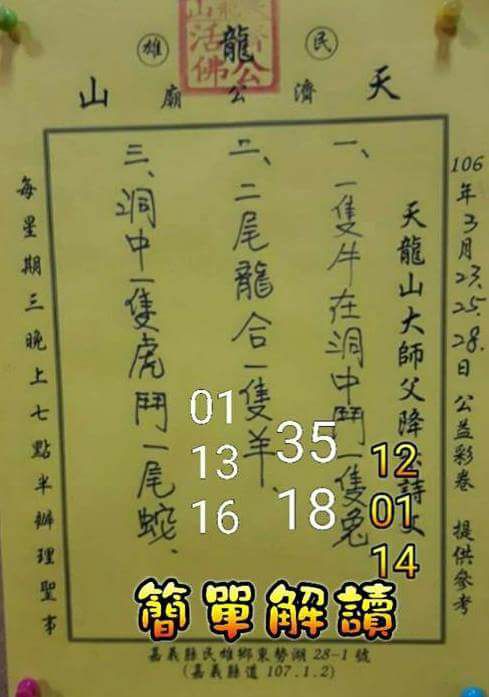 民 龍 雄
天 濟 公 廟 山
活佛
106年3月23.25.28.日公益彩卷 提供參考
天龍山大師父降詩
一、一隻牛在洞中鬥一隻兔
二、二尾龍合一隻羊、
三、洞中一隻虎鬥一尾蛇、
每星期三晚上七點半辦理聖事
12
01
14
35
18
01
13
16
簡單解讀
嘉義縣民雄鄉東勢湖28-1號
(嘉義縣道107.1.2)